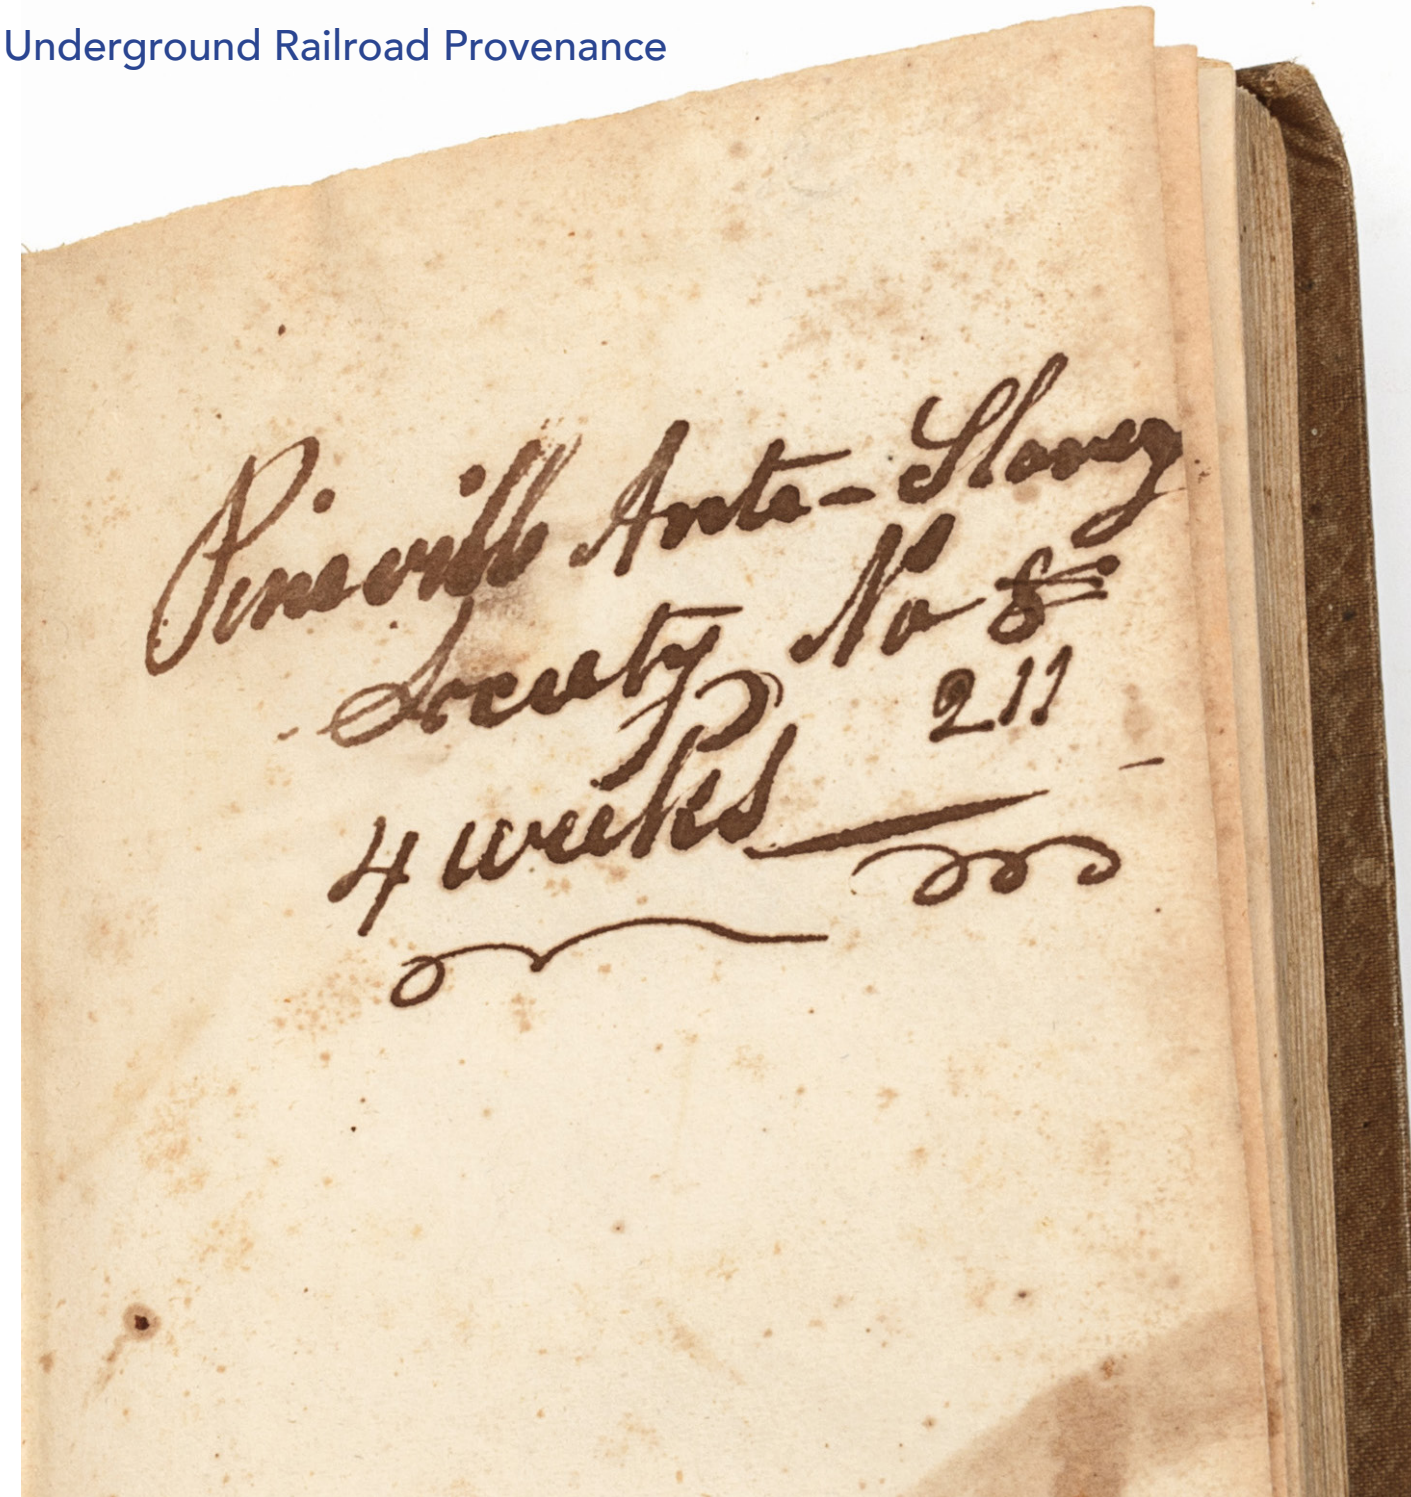 Underground Railroad Provenance
Pineville Ante-Slavery
Society No 8
211
4 weeks